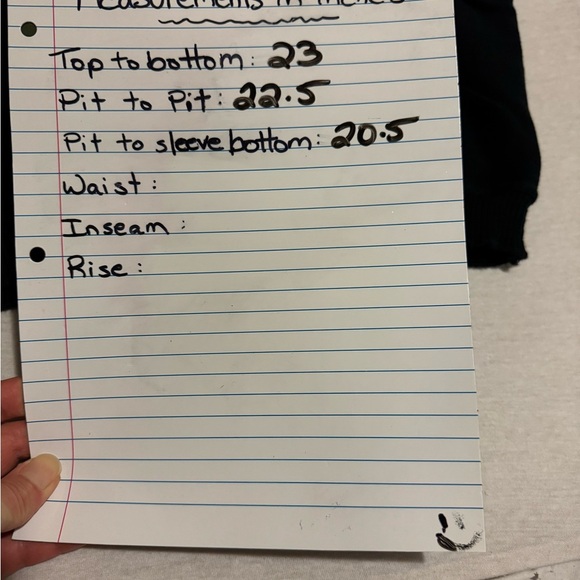 Measurements in inches
Top to bottom: 23
Pit to Pit: 22.5
Pit to sleeve bottom: 20.5
Waist:
Inseam:
Rise: